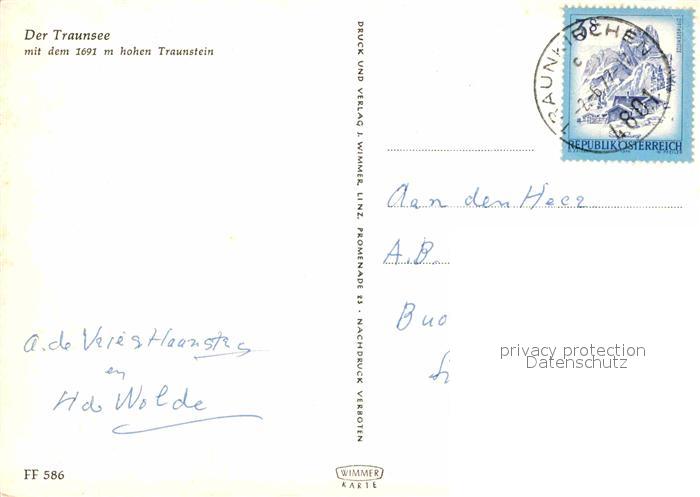 Der Traunsee
mit dem 1691 m hohen Traunstein
DRUCK UND VERLAG J. WIMMER, LINZ, PROMENADE 23 · NACHDRUCK VERBOTEN
TRAUNKIRCHEN
4801
REPUBLIK ÖSTERREICH
Aan den Heer
A.B.
Buo
privacy protection
Datenschutz
A. de Vries
en
H de Wolde
FF 586
WIMMER
KARTE